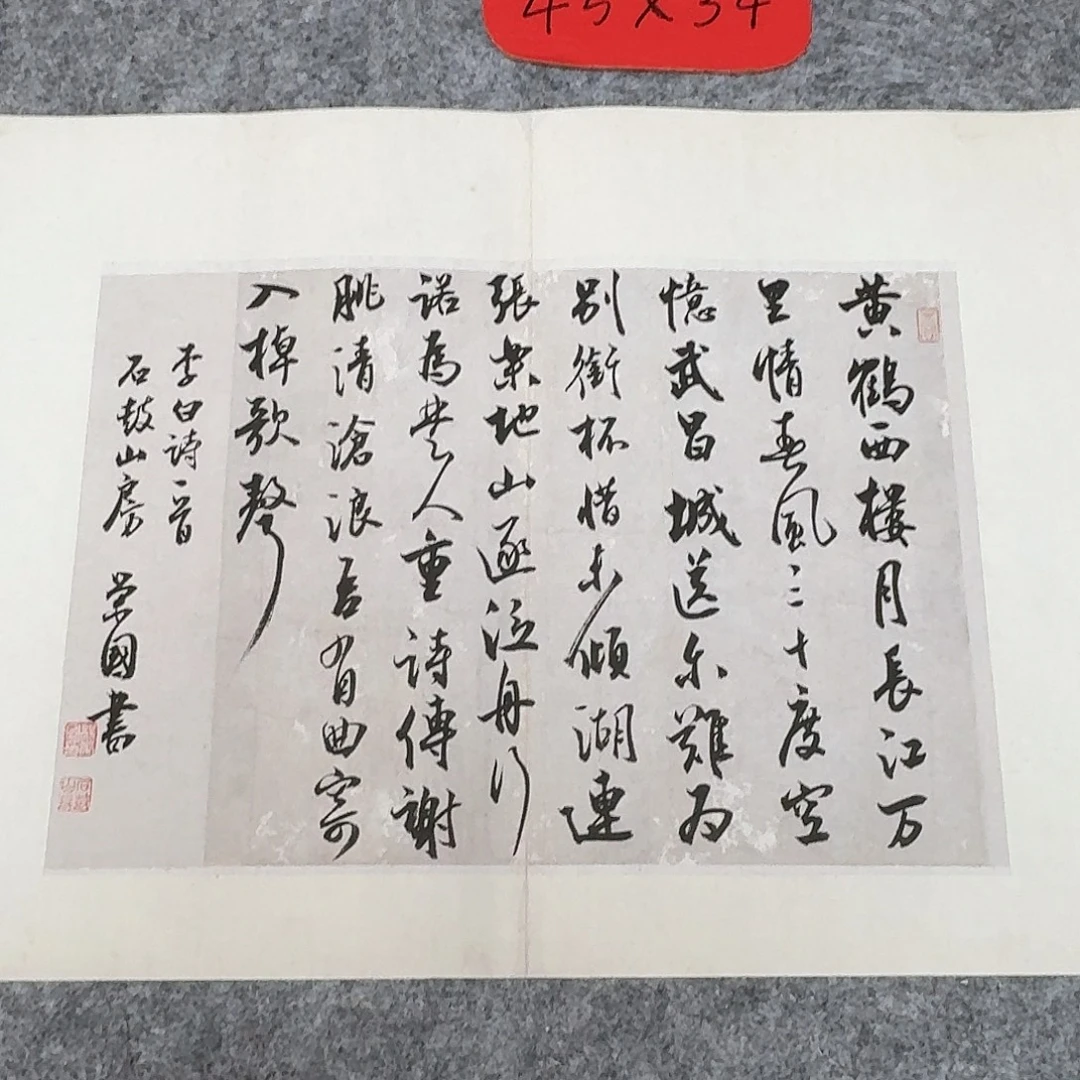 45X34
黄鶴西樓月長江万
里情春風三十度空
憶武昌城送尔難为
别銜杯惜未傾湖連
張樂地山逐泛舟行
諾為楚人重詩傳謝
朓清滄浪吾有曲寄
入棹歌聲
李白詩一首
石鼓山房 荣國書